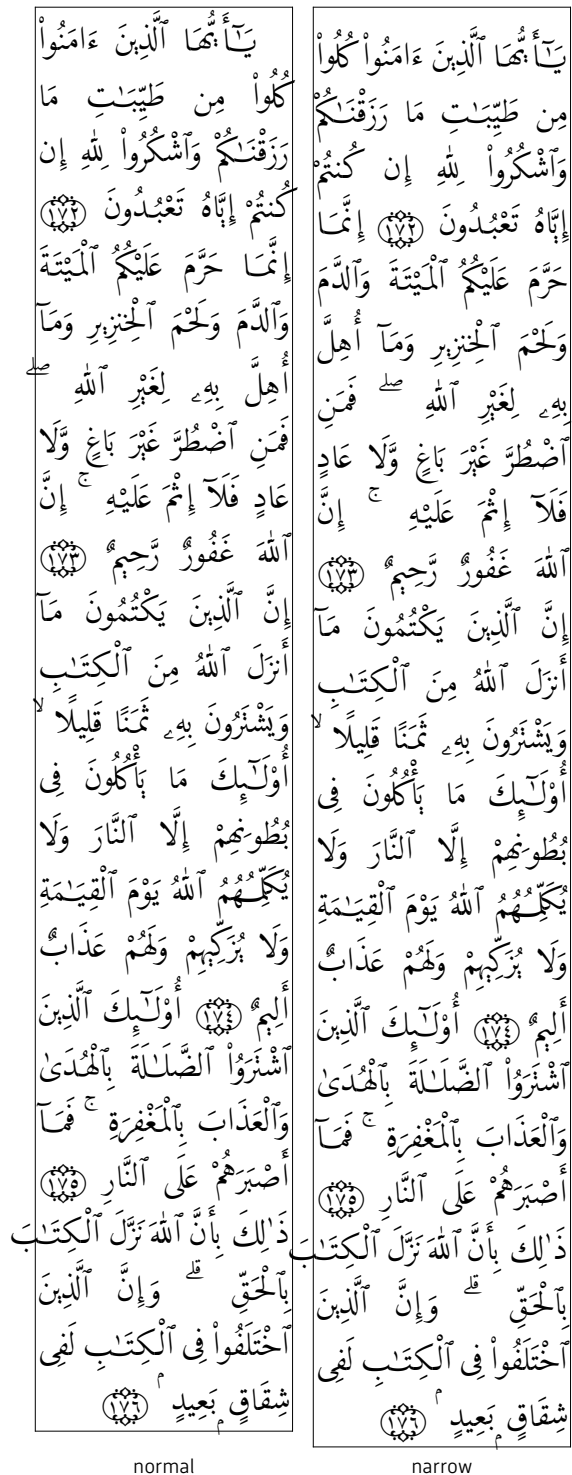 يَـٰٓأَيُّهَا ٱلَّذِينَ ءَامَنُوا۟
كُلُوا۟ مِن طَيِّبَـٰتِ مَا
رَزَقْنَـٰكُمْ وَٱشْكُرُوا۟ لِلَّهِ إِن
كُنتُمْ إِيَّاهُ تَعْبُدُونَ ۝١٧٢
إِنَّمَا حَرَّمَ عَلَيْكُمُ ٱلْمَيْتَةَ
وَٱلدَّمَ وَلَحْمَ ٱلْخِنزِيرِ وَمَآ
أُهِلَّ بِهِۦ لِغَيْرِ ٱللَّهِ ۖ
فَمَنِ ٱضْطُرَّ غَيْرَ بَاغٍ وَلَا
عَادٍ فَلَآ إِثْمَ عَلَيْهِ ۚ إِنَّ
ٱللَّهَ غَفُورٌ رَّحِيمٌ ۝١٧٣
إِنَّ ٱلَّذِينَ يَكْتُمُونَ مَآ
أَنزَلَ ٱللَّهُ مِنَ ٱلْكِتَـٰبِ
وَيَشْتَرُونَ بِهِۦ ثَمَنًا قَلِيلًا ۙ
أُو۟لَـٰٓئِكَ مَا يَأْكُلُونَ فِى
بُطُونِهِمْ إِلَّا ٱلنَّارَ وَلَا
يُكَلِّمُهُمُ ٱللَّهُ يَوْمَ ٱلْقِيَـٰمَةِ
وَلَا يُزَكِّيهِمْ وَلَهُمْ عَذَابٌ
أَلِيمٌ ۝١٧٤ أُو۟لَـٰٓئِكَ ٱلَّذِينَ
ٱشْتَرَوُا۟ ٱلضَّلَـٰلَةَ بِٱلْهُدَىٰ
وَٱلْعَذَابَ بِٱلْمَغْفِرَةِ ۚ فَمَآ
أَصْبَرَهُمْ عَلَى ٱلنَّارِ ۝١٧٥
ذَٰلِكَ بِأَنَّ ٱللَّهَ نَزَّلَ ٱلْكِتَـٰبَ
بِٱلْحَقِّ ۗ وَإِنَّ ٱلَّذِينَ
ٱخْتَلَفُوا۟ فِى ٱلْكِتَـٰبِ لَفِى
شِقَاقٍۭ بَعِيدٍ ۝١٧٦
normal
يَـٰٓأَيُّهَا ٱلَّذِينَ ءَامَنُوا۟ كُلُوا۟
مِن طَيِّبَـٰتِ مَا رَزَقْنَـٰكُمْ
وَٱشْكُرُوا۟ لِلَّهِ إِن كُنتُمْ
إِيَّاهُ تَعْبُدُونَ ۝١٧٢ إِنَّمَا
حَرَّمَ عَلَيْكُمُ ٱلْمَيْتَةَ وَٱلدَّمَ
وَلَحْمَ ٱلْخِنزِيرِ وَمَآ أُهِلَّ
بِهِۦ لِغَيْرِ ٱللَّهِ ۖ فَمَنِ
ٱضْطُرَّ غَيْرَ بَاغٍ وَلَا عَادٍ
فَلَآ إِثْمَ عَلَيْهِ ۚ إِنَّ
ٱللَّهَ غَفُورٌ رَّحِيمٌ ۝١٧٣
إِنَّ ٱلَّذِينَ يَكْتُمُونَ مَآ
أَنزَلَ ٱللَّهُ مِنَ ٱلْكِتَـٰبِ
وَيَشْتَرُونَ بِهِۦ ثَمَنًا قَلِيلًا ۙ
أُو۟لَـٰٓئِكَ مَا يَأْكُلُونَ فِى
بُطُونِهِمْ إِلَّا ٱلنَّارَ وَلَا
يُكَلِّمُهُمُ ٱللَّهُ يَوْمَ ٱلْقِيَـٰمَةِ
وَلَا يُزَكِّيهِمْ وَلَهُمْ عَذَابٌ
أَلِيمٌ ۝١٧٤ أُو۟لَـٰٓئِكَ ٱلَّذِينَ
ٱشْتَرَوُا۟ ٱلضَّلَـٰلَةَ بِٱلْهُدَىٰ
وَٱلْعَذَابَ بِٱلْمَغْفِرَةِ ۚ فَمَآ
أَصْبَرَهُمْ عَلَى ٱلنَّارِ ۝١٧٥
ذَٰلِكَ بِأَنَّ ٱللَّهَ نَزَّلَ ٱلْكِتَـٰبَ
بِٱلْحَقِّ ۗ وَإِنَّ ٱلَّذِينَ
ٱخْتَلَفُوا۟ فِى ٱلْكِتَـٰبِ لَفِى
شِقَاقٍۭ بَعِيدٍ ۝١٧٦
narrow